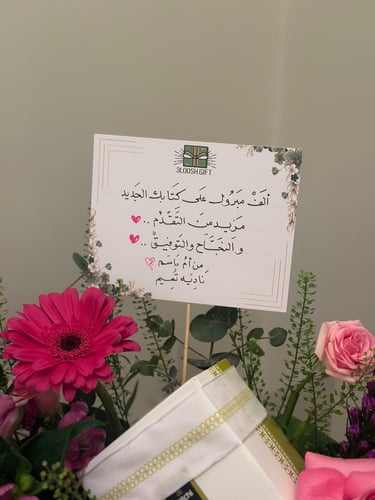 3LOOSH.GIFT
ألف مبروك على كتابك الجديد
مزيد من التقدم ..
والنجاح والتوفيق ..
من أم باسم
نادية تميم